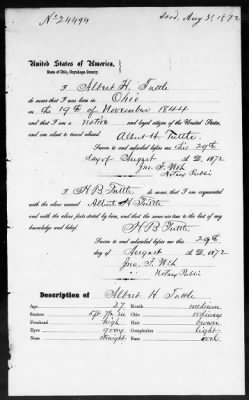 No 24494
Issd. Aug 31, 1872
United States of America,
State of Ohio, Cuyahoga County.
I Albert H. Tuttle
do swear that I was born in Ohio
on the 19th of November 1844
and that I am a native and loyal citizen of the United States,
and am about to travel abroad.
Albert H. Tuttle.
Sworn to and subscribed before me this 29th
day of August A.D. 1872
Jno. F.
Notary Public
I H B Tuttle do swear that I am acquainted
with the above named Albert H Tuttle
and with the above facts stated by him, and that the same are true to the best of my
knowledge and belief.
H B Tuttle
Sworn to and subscribed before me this 29th
day of August A.D. 1872
Jno. F.
Notary Public
Description of Albert H Tuttle
Age: 27 Mouth medium
Stature 5 ft in Chin
Forehead high Hair brown
Eyes gray Complexion light
Nose straight Face oval